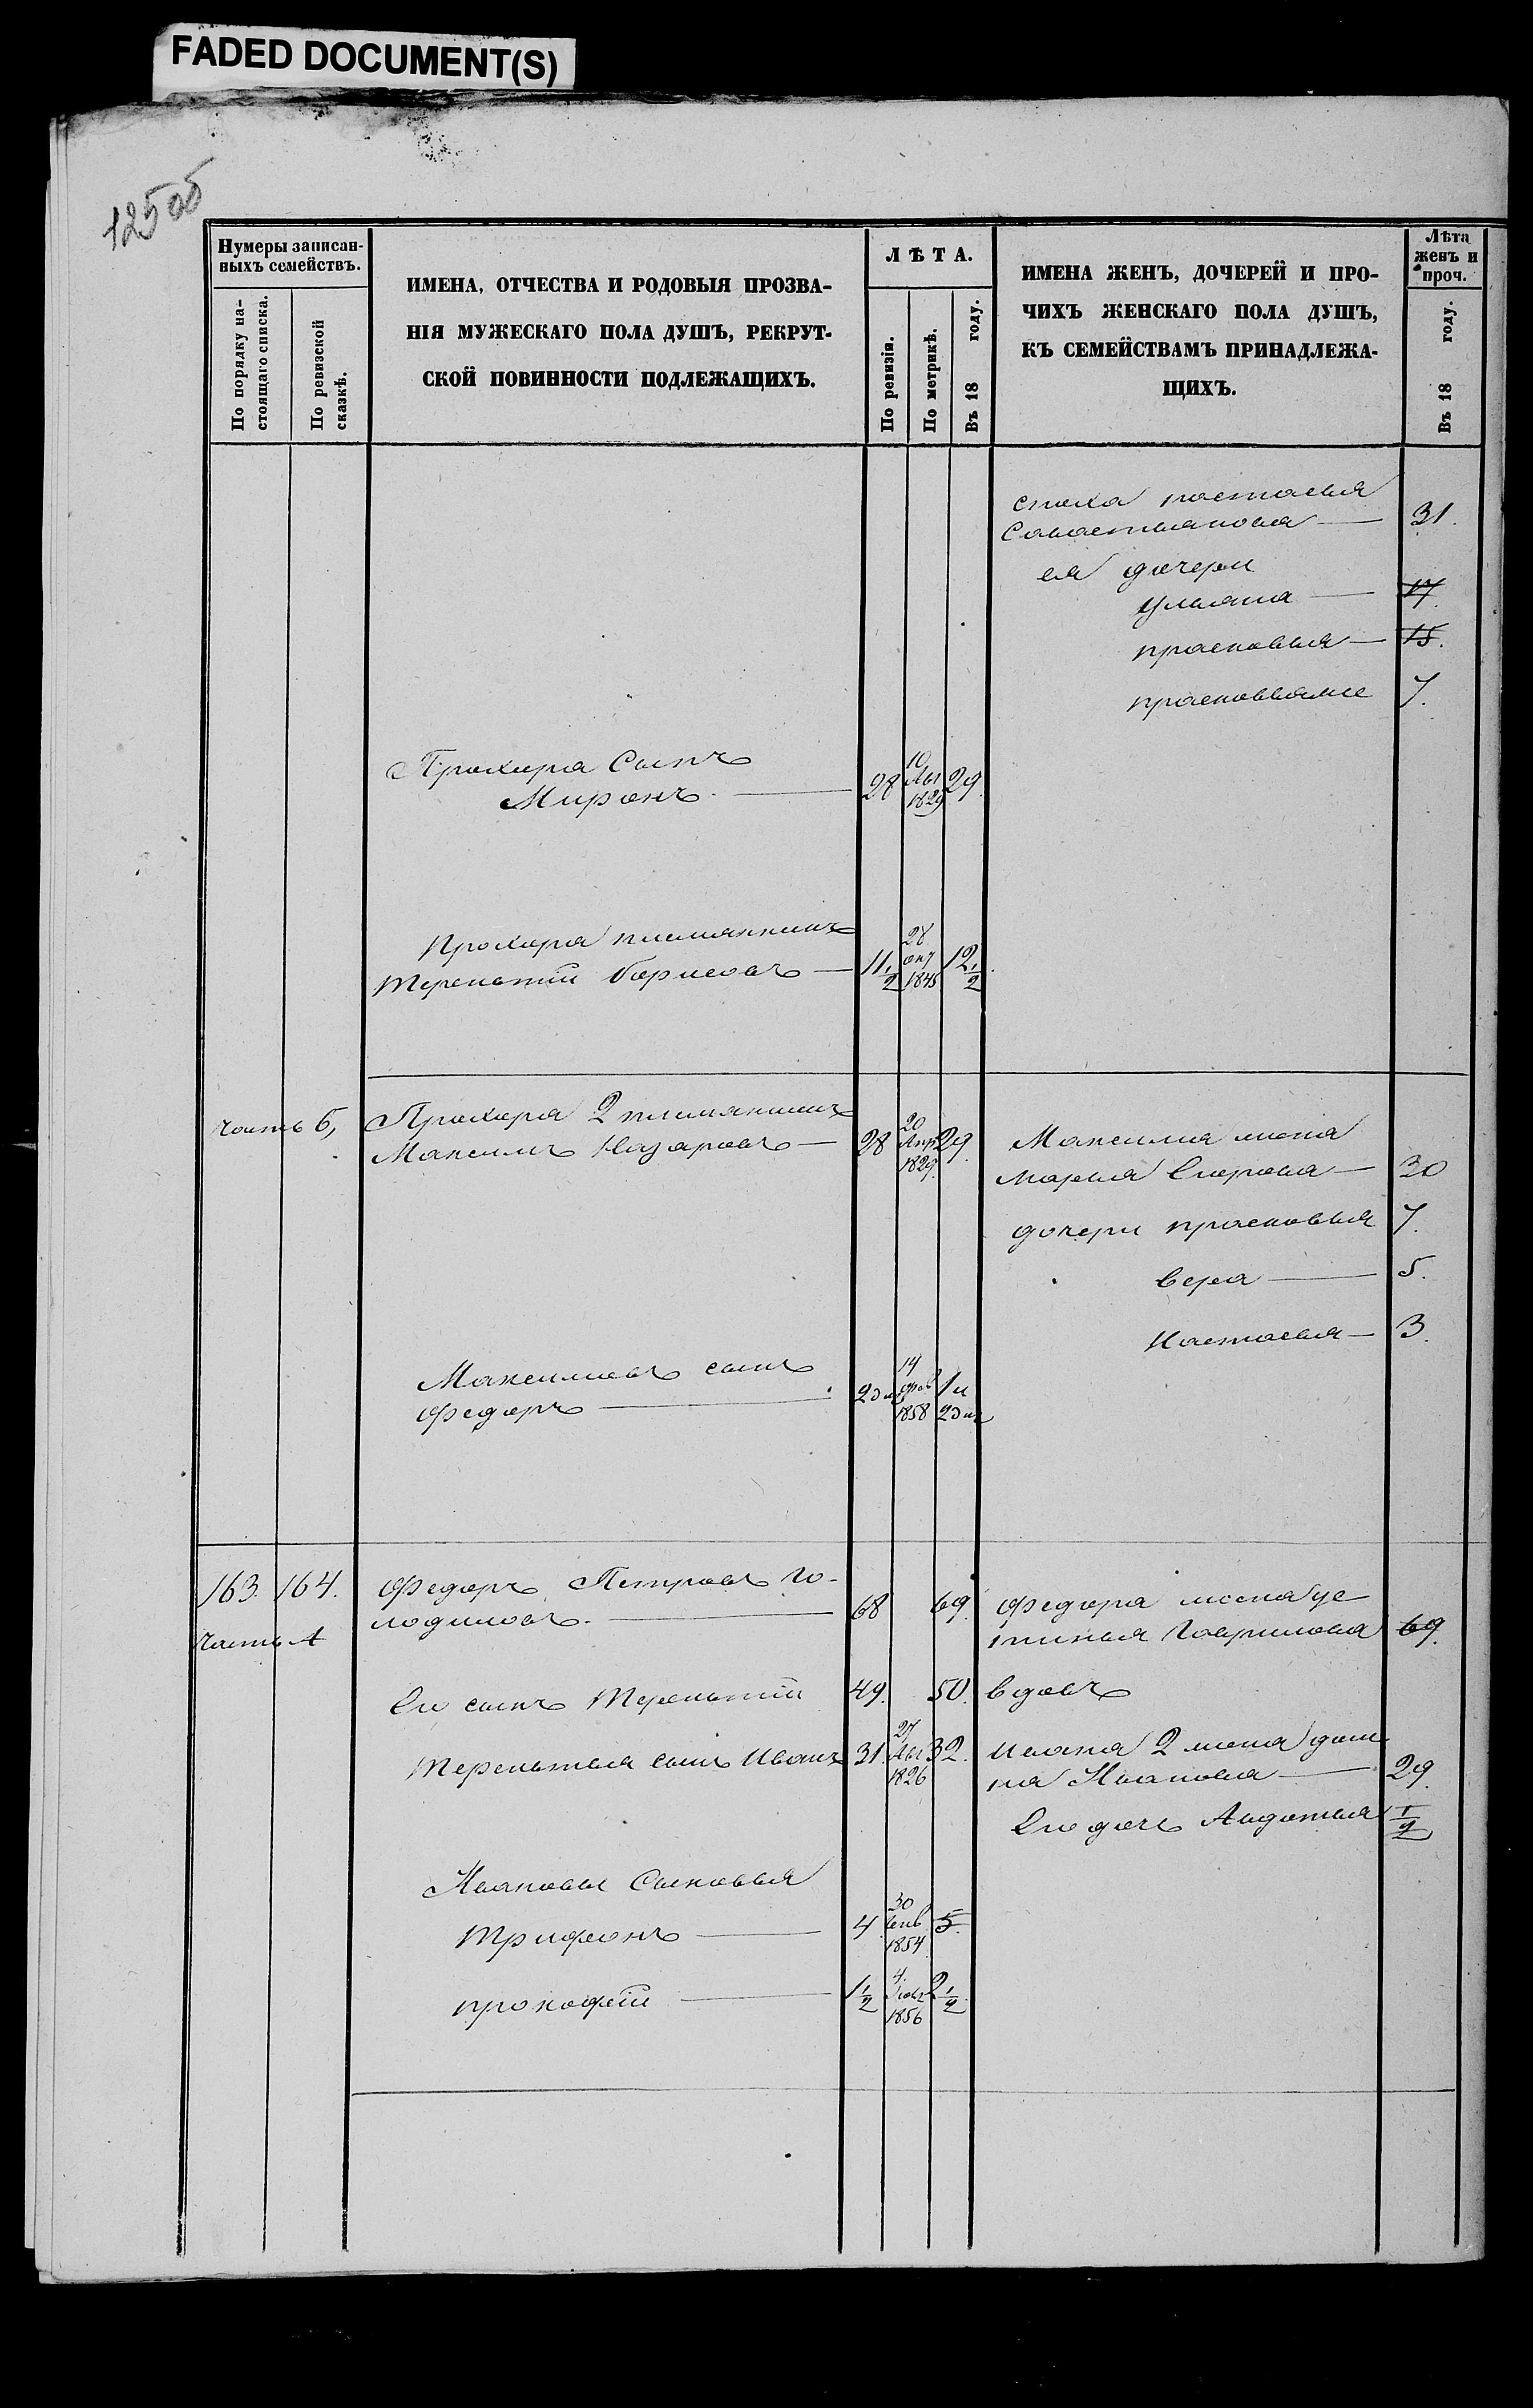 FADED DOCUMENT(S)
125 об
Нумеры записан-
ныхъ семействъ.
По порядку на-
стоящаго списка.
По ревизской
сказкѣ.
ИМЕНА, ОТЧЕСТВА И РОДОВЫЯ ПРОЗВА-
НІЯ МУЖЕСКАГО ПОЛА ДУШЪ, РЕКРУТ-
СКОЙ ПОВИННОСТИ ПОДЛЕЖАЩИХЪ.
ЛѢТА.
По ревизіи.
По метрикѣ.
Въ 18 году.
ИМЕНА ЖЕНЪ, ДОЧЕРЕЙ И ПРО-
ЧИХЪ ЖЕНСКАГО ПОЛА ДУШЪ,
КЪ СЕМЕЙСТВАМЪ ПРИНАДЛЕЖА-
ЩИХЪ.
Лѣта
женъ и
проч.
Въ 18 году.
сноха настасья
Савастьянова — 31.
ея дочери
Ульяна — 17.
прасковья — 15.
прасковья же 7.
Прохора Сынъ
Миронъ. — 28 10 Авг 1829 29.
Прохора племянникъ
терентий борисовъ — 11 1/2 28 окт 1845 12 1/2.
часть б, Прохора 2 племянникъ
Максимъ Назаровъ — 28 20 Апр 1829. 29.
Максима жена
марья Егорова — 30
дочери прасковья 7.
вера — 5.
настасья — 3.
Максимовъ сынъ
федоръ — 14 фев 1858 1 и
163. 164. федоръ Петровъ Го-
лодиловъ. — 68 69.
часть А
федора жена Ус
тинья Гаврилова 69.
Ево сынъ терентий 49. 50. вдовъ
терентья сынъ Иванъ 31. 27 Авг 1826 32.
ивана 2 жена дом
на Иванова — 29.
Ево дочь Авдотья 1/2
Ивановы Сыновья
трифонъ — 4 30 Генв 1854 5.
прокофий — 1 1/2 4. 1856 2 1/2.